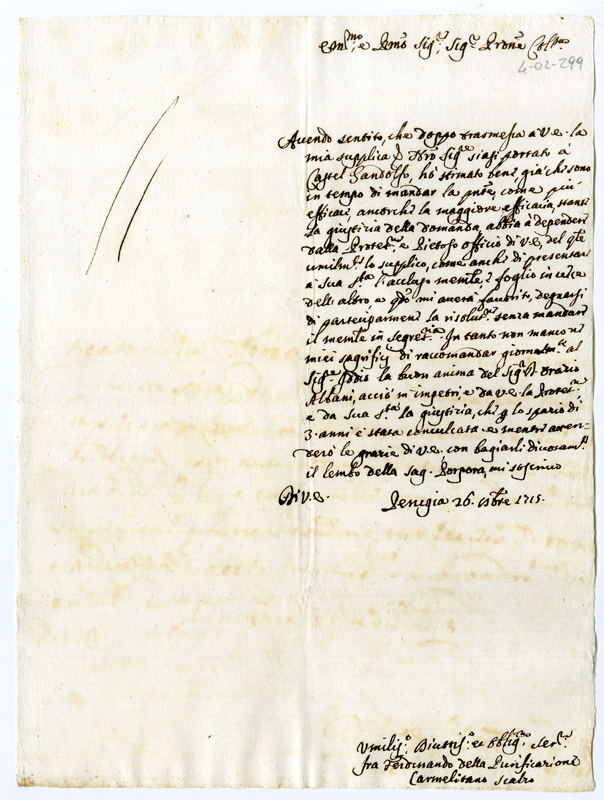 Em.mo, e Rmo Sig.r, Sig.r Prone Col.mo
4-02-299
Avendo sentito, che doppo trasmessa à V.E. la
mia supplica siasi portato à
Castel Gandolfo, hò stimato bene, già che sono
in tempo di mandar la pnte, come più
efficace, ancorche la maggiore efficacia, stante
la giustizia della domanda, abbia à dependere
dalla Protet.ne e Pietoso officio di V.E., del qle
umilmte lo supplico, come anche di presentare
à sua S.tà l'accluso memle, e foglio in vece
dell altro, e qdo mi averà favorito, degnarsi
di parteciparmene la risoluz.ne senza mandare
il memle in segret.ria. In tanto non manco ne
miei sagrifici di raccomandar giornalmte al
Sig.re Iddio la buon anima del Sig.r D. Orazio
Albani, acciò m'impetri, e da V.E. la Protet.ne
e da sua S.tà la giustizia, che p lo spazio di
3. anni è stata conculcata e mentre atten-
derò le grazie di V.E. con bagiarli divotam.te
il lembo della sag. Porpora, mi soscrivo
Di V.E. Perugia 26. 8bre 1715.
Umiliss.o Divotiss.o et Obblig.mo Ser.re
fra Ferdinando della Purificazione
Carmelitano Scalzo